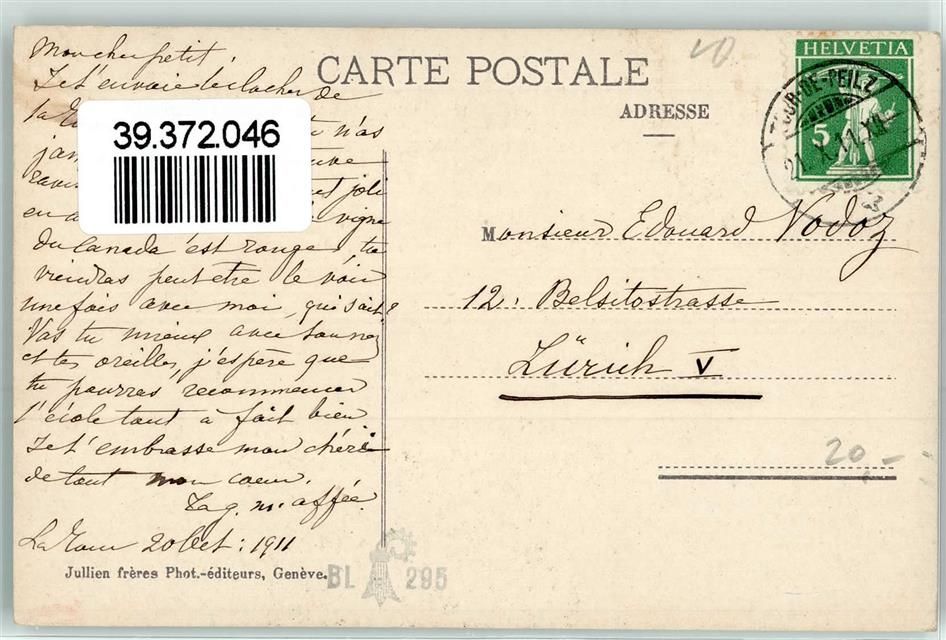 Mon cher petit
Je t'envoie le clocher de
la
n'as
jam
ravi joli
en a vigne
du Canada c'est rouge, tu
viendras peut etre le voir
une fois avec moi, qui sait?
Vas tu mieux avec ton nez
et tes oreilles, j'espère que
tu pourras recommencer
l'école tout à fait bien
Je t'embrasse mon chéri
de tout mon coeur.
Ta g. m. affée.
La Tour 20 Oct: 1911
Jullien frères Phot.-éditeurs, Genève.
39.372.046
CARTE POSTALE
ADRESSE
HELVETIA
5
OUR-DE-PEILZ
21.X.11.XII
Monsieur Edouard Vodoz
12. Belsitostrasse
Zürich V
20,-
BL 295